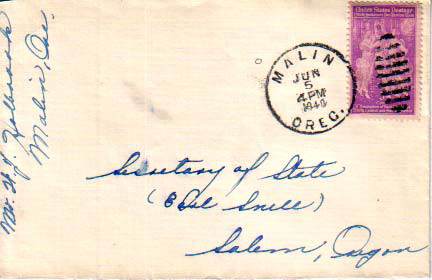 United States Postage
MALIN
JUN
5
4 PM
1940
OREG.
Malin, Ore.
Secretary of State
(Snell)
Salem, Oregon